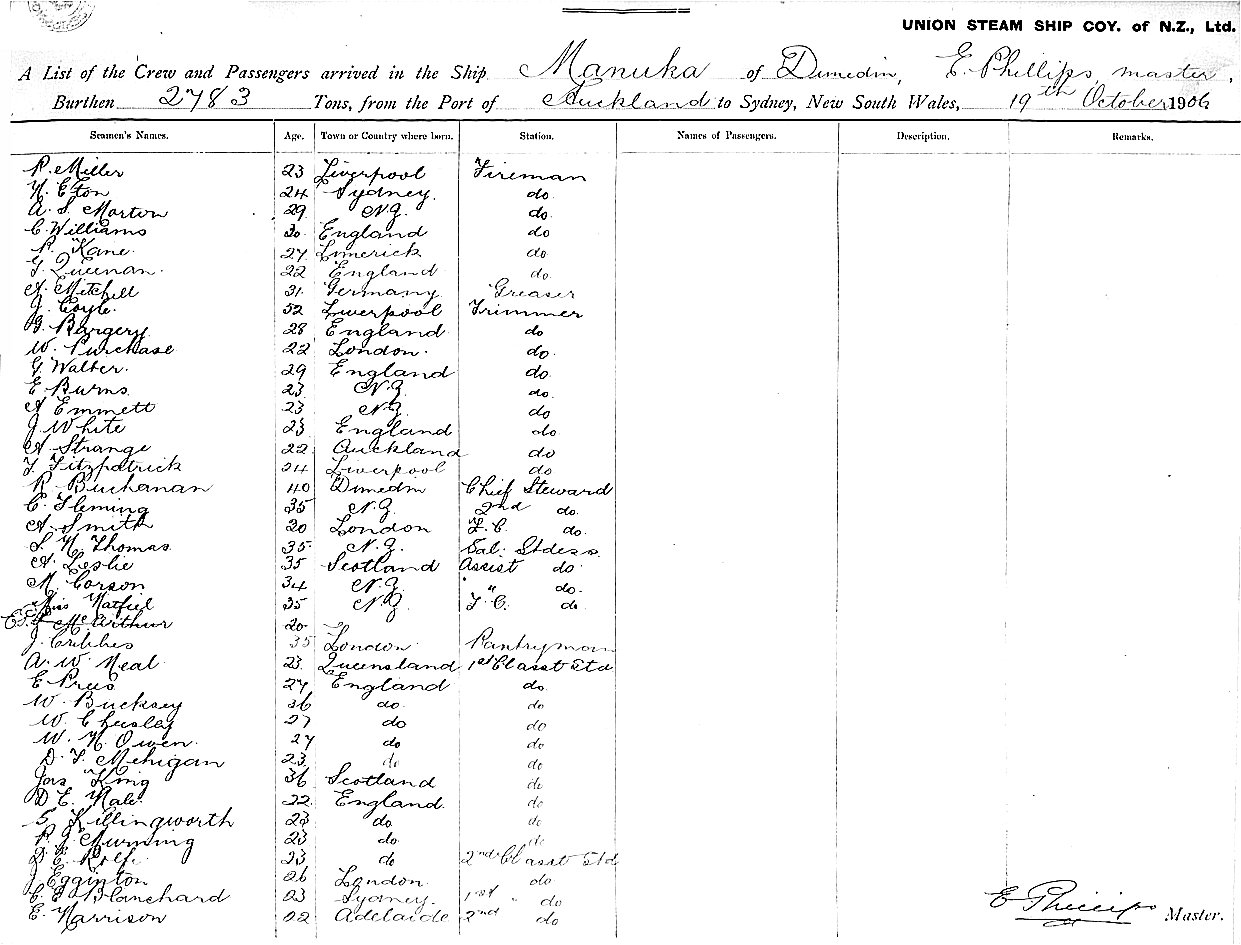 UNION STEAM SHIP COY. of N.Z., Ltd.
A List of the Crew and Passengers arrived in the Ship Manuka of Dunedin, E. Phillips, master,
Burthen 2783 Tons, from the Port of Auckland to Sydney, New South Wales, 19th October 1906
Seamen's Names. Age. Town or Country where born. Station. Names of Passengers. Description. Remarks.
P. Miller 23 Liverpool Fireman
H. Eton 24 Sydney. do
A. S. Morton 29 N.Z. do
C. Williams 30 England do
P. Kane 27 Limerick do
22 England do.
A. Mitchell 31 Germany Greaser
J. Coyle. 52 Liverpool Trimmer
G. Bargery 28 England do
W. Purchase 22 London. do.
G. Walter. 29 England do.
E. Burns 23 N.Z. do.
A Emmett 23 N.Z. do
J. White 23 England do
A Strange 22 Auckland do
T. Fitzpatrick 24 Liverpool do
R. Buchanan 40 Dunedin Chief Steward
C. Fleming 35 N.Z. 2nd do.
A. Smith 20 London F.C. do.
S. H. Thomas 35 N.Z. Sal. Stdess.
A. Leslie 35 Scotland Assist do
M. Corson 34 N.Z. " do.
Miss Hatfiel 35 N.Z. F.C. do.
McArthur 20
J. 35 London Pantryman
A. W. Neal 23 Queensland 1st Classt Std
E 27 England do.
W. Bucksey 36 do. do
W. 27 do do
W. H. Owen. 27 do do
D. F. Mehigan 23 do do
Jas King 36 Scotland do
D E. Hale 22 England. do
S. Killingworth 23 do do
P. J. 23 do do
E. Rolfe 23 do 2nd Classt Std
J. Egginton 26 London. do
C. E. Blanchard 23 Sydney. 1st " do
E. Harrison 22 Adelaide 2nd do
E Phillips Master.